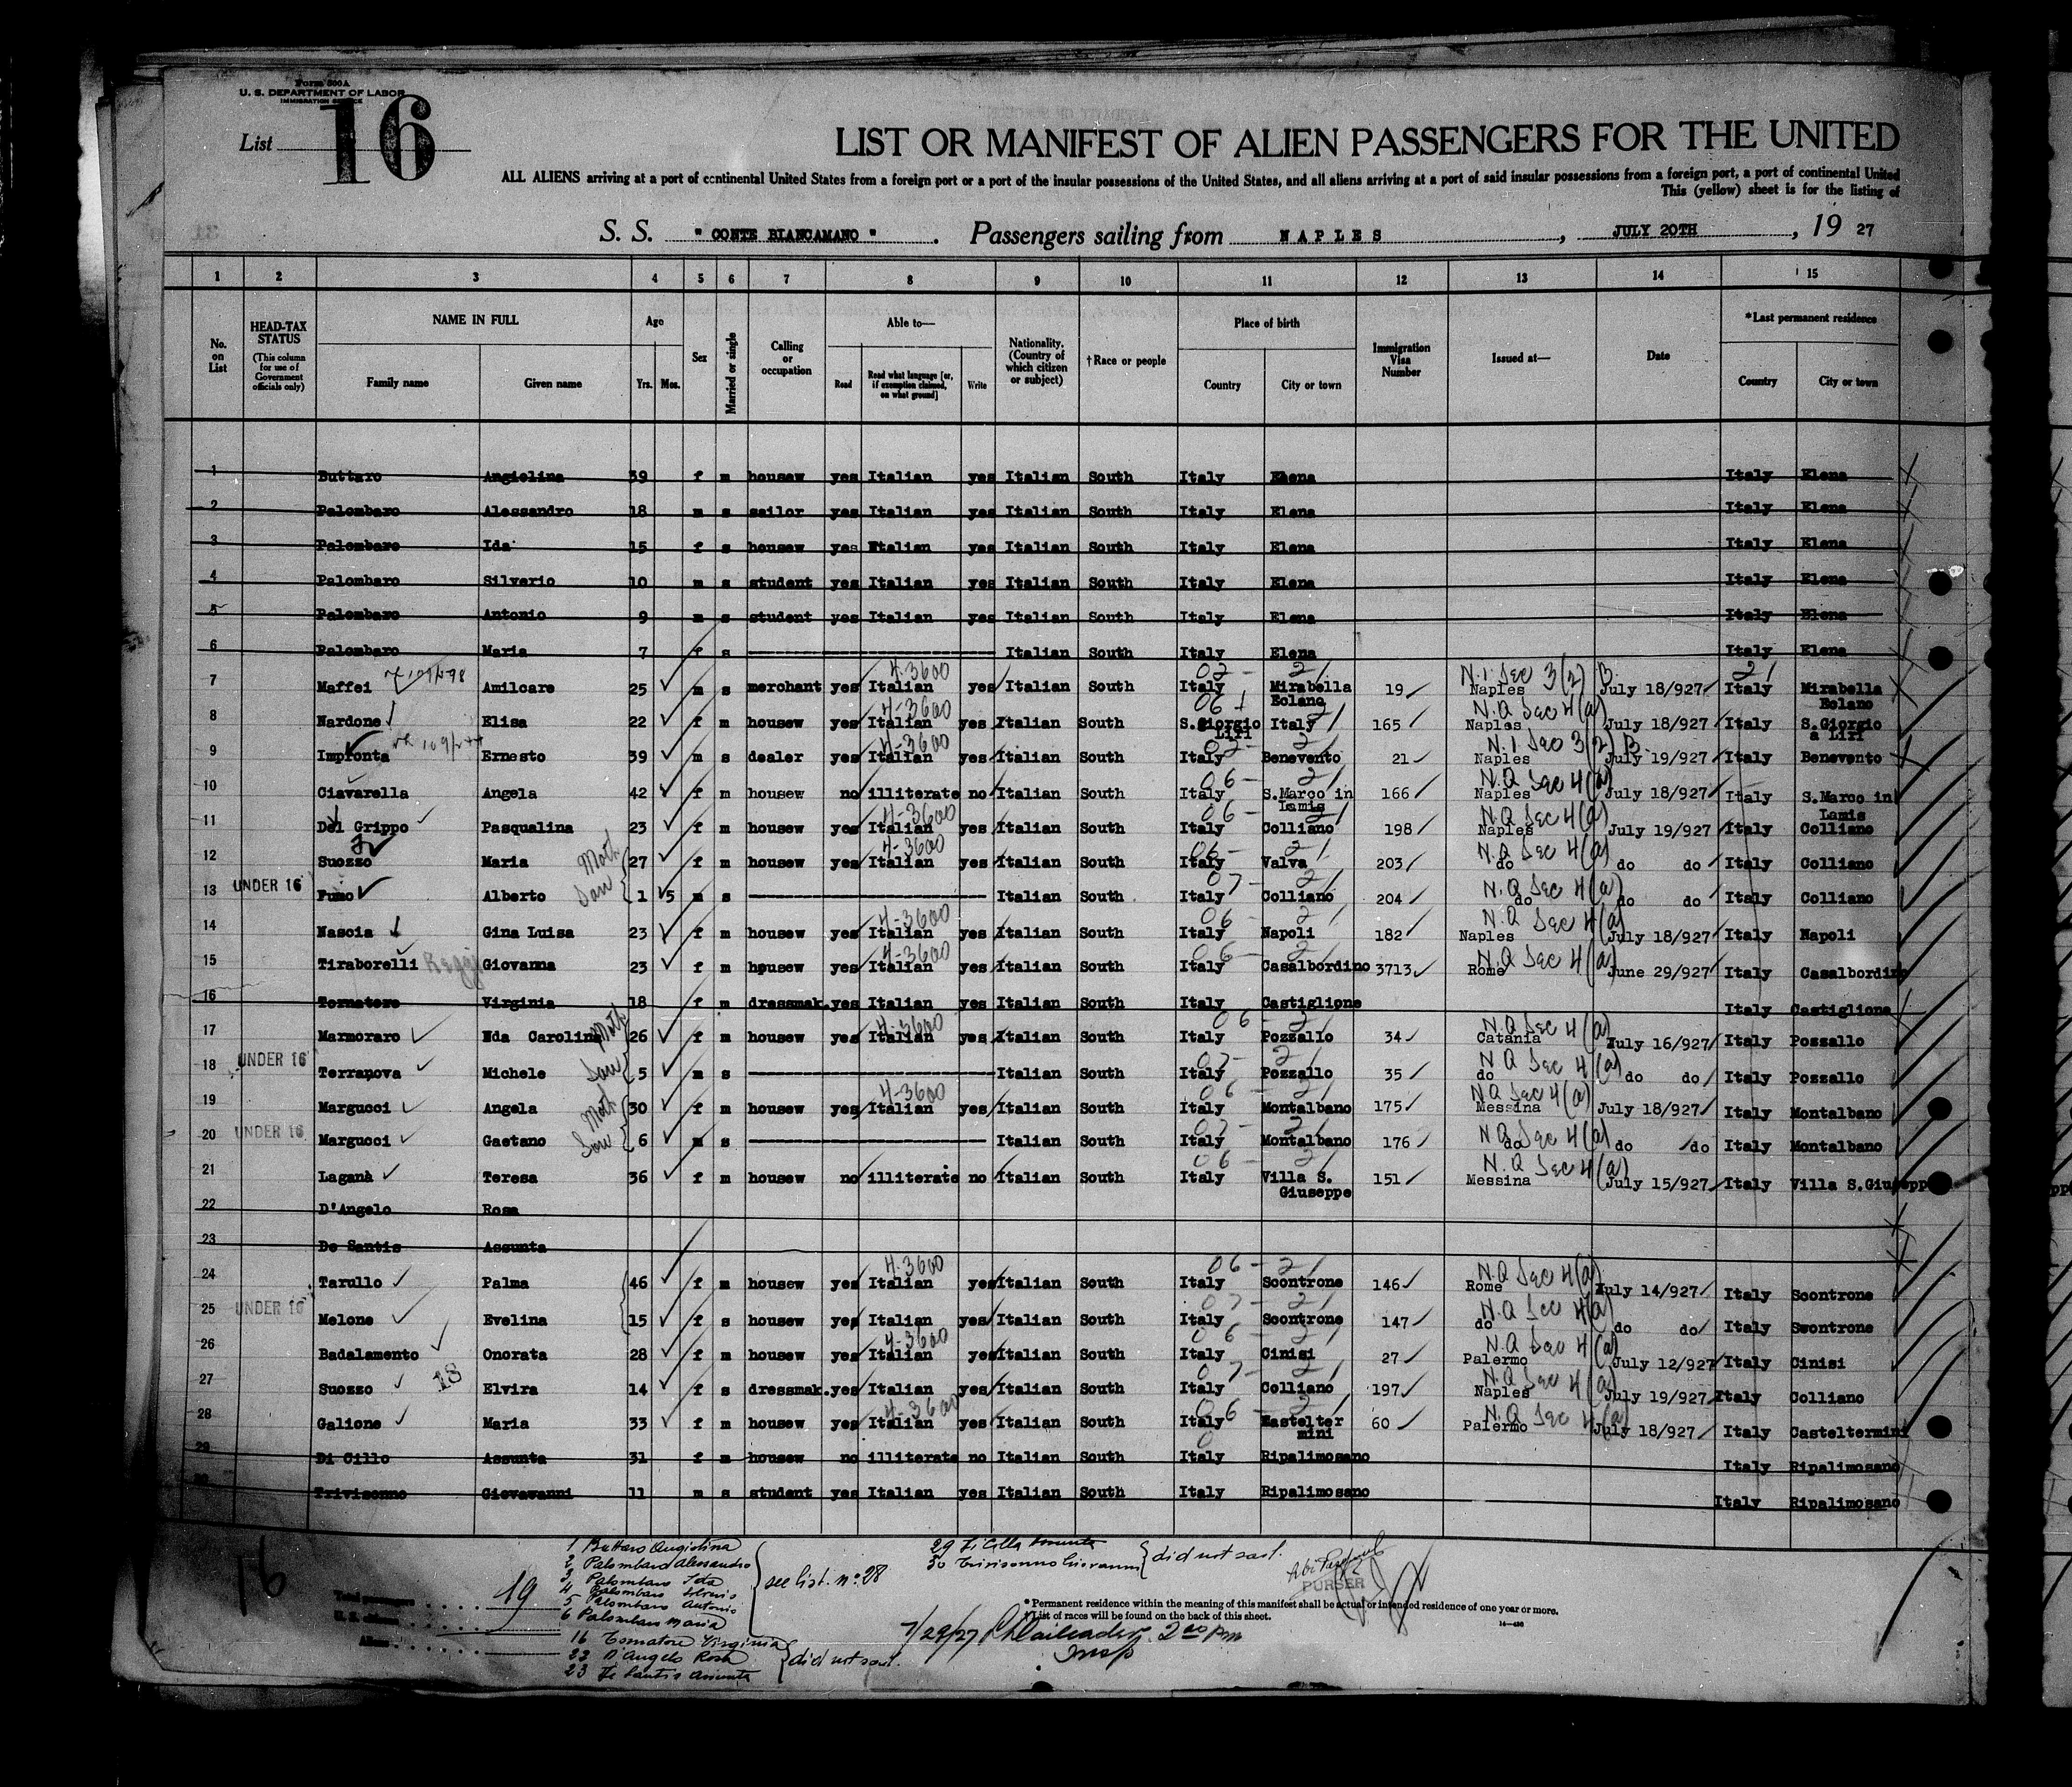 Form 500A
U. S. DEPARTMENT OF LABOR
IMMIGRATION SERVICE
List 16
LIST OR MANIFEST OF ALIEN PASSENGERS FOR THE UNITED
ALL ALIENS arriving at a port of continental United States from a foreign port or a port of the insular possessions of the United States, and all aliens arriving at a port of said insular possessions from a foreign port, a port of continental United
This (yellow) sheet is for the listing of
S. S. " CONTE BIANCAMANO " . Passengers sailing from NAPLES , JULY 20TH , 19 27
1 2 3 4 5 6 7 8 9 10 11 12 13 14 15
No. on List
HEAD-TAX STATUS (This column for use of Government officials only)
NAME IN FULL Family name Given name
Age Yrs. Mos.
Sex
Married or single
Calling or occupation
Able to— Read Read what language [or, if exemption claimed, on what ground] Write
Nationality. (Country of which citizen or subject)
†Race or people
Place of birth Country City or town
Immigration Visa Number
Issued at—
Date
*Last permanent residence Country City or town
1 Buttaro Angiolina 39 f m housew yes Italian yes Italian South Italy Elena Italy Elena
2 Palombaro Alessandro 18 m s sailor yes Italian yes Italian South Italy Elena Italy Elena
3 Palombaro Ida 15 f s housew yes Italian yes Italian South Italy Elena Italy Elena
4 Palombaro Silverio 10 m s student yes Italian yes Italian South Italy Elena Italy Elena
5 Palombaro Antonio 9 m s student yes Italian yes Italian South Italy Elena Italy Elena
6 Palombaro Maria 7 f s Italian South Italy Elena Italy Elena
4-3600 02 - 21 N.I Sec 3(2) B 21
7 Maffei Amilcare 25 m s merchant yes Italian yes Italian South Italy Mirabella Eclano 19 Naples July 18/927 Italy Mirabella Eolano
4-3600 06 N.Q Sec 4(a)
8 Nardone Elisa 22 f m housew yes Italian yes Italian South S.Giorgio Liri Italy 165 Naples July 18/927 Italy S.Giorgio a Liri
4-3600 02 - 21 N.I Sec 3(2) B
9 Impronta Ernesto 39 m s dealer yes Italian yes Italian South Italy Benevento 21 Naples July 19/927 Italy Benevento
06 - 21 N.Q Sec 4(a)
10 Ciavarella Angela 42 f m housew no illiterate no Italian South Italy S.Marco in Lamis 166 Naples July 18/927 Italy S.Marco in Lamis
4-3600 06 - 21 N.Q Sec 4(a)
11 Del Grippo Pasqualina 23 f m housew yes Italian yes Italian South Italy Colliano 198 Naples July 19/927 Italy Colliano
4-3600 06 - 21 N.Q Sec 4(a)
12 Suozzo Maria Moth 27 f m housew yes Italian yes Italian South Italy Valva 203 do do do Italy Colliano
07 - 21 N.Q Sec 4(a)
13 UNDER 16 Fumo Alberto Son 1 5 m s Italian South Italy Colliano 204 do do do Italy Colliano
4-3600 06 - 21 N.Q Sec 4(a)
14 Nascia Gina Luisa 23 f m housew yes Italian yes Italian South Italy Napoli 182 Naples July 18/927 Italy Napoli
4-3600 06 - 21 N.Q Sec 4(a)
15 Tiraborelli Giovanna 23 f m housew yes Italian yes Italian South Italy Casalbordino 3713 Rome June 29/927 Italy Casalbordino
16 Tornatore Virginia 18 f m dressmak. yes Italian yes Italian South Italy Castiglione Italy Castiglione
4-3600 06 - 21 N.Q Sec 4(a)
17 Marmoraro Nda Carolina Moth 26 f m housew yes Italian yes Italian South Italy Pozzallo 34 Catania July 16/927 Italy Pozzallo
07 - 21 N Q Sec 4(a)
18 UNDER 16 Terranova Michele Son 5 m s Italian South Italy Pozzallo 35 do do do Italy Pozzallo
4-3600 06 - 21 N.Q Sec 4(a)
19 Margucci Angela Moth 30 f m housew yes Italian yes Italian South Italy Montalbano 175 Messina July 18/927 Italy Montalbano
07 - 21 N Q Sec 4(a)
20 UNDER 16 Margucci Gaetano Son 6 m s Italian South Italy Montalbano 176 do do do Italy Montalbano
06 - 21 N.Q Sec 4(a)
21 Laganà Teresa 36 f m housew no illiterate no Italian South Italy Villa S. Giuseppe 151 Messina July 15/927 Italy Villa S.Giuseppe
22 D'Angelo Rosa
23 De Santis Assunta
4-3600 06 - 21 N.Q Sec 4(a)
24 Tarullo Palma 46 f m housew yes Italian yes Italian South Italy Scontrone 146 Rome July 14/927 Italy Scontrone
07 - 21 N.Q Sec 4(a)
25 UNDER 16 Melone Evelina 15 f s housew yes Italian yes Italian South Italy Scontrone 147 do do do Italy Swontrone
4-3600 06 - 21 N.Q Sec 4(a)
26 Badalamento Onorata 28 f m housew yes Italian yes Italian South Italy Cinisi 27 Palermo July 12/927 Italy Cinisi
07 - 21 N.Q Sec 4(a)
27 Suozzo 18 Elvira 14 f s dressmak. yes Italian yes Italian South Italy Colliano 197 Naples July 19/927 Italy Colliano
4-3600 06 - 21 N.Q Sec 4(a)
28 Galione Maria 33 f m housew yes Italian yes Italian South Italy Kastelter mini 60 Palermo July 18/927 Italy Casteltermini
29 Di Cillo Assunta 31 f m housew no illiterate no Italian South Italy Ripalimosano Italy Ripalimosano
30 Trivisonno Giovavanni 11 m s student yes Italian yes Italian South Italy Ripalimosano Italy Ripalimosano
16
Total passengers 19
U. S. citizens
Aliens
1 Buttaro Angiolina
2 Palombaro Alessandro
3 Palombaro Ida
4 Palombaro Silverio
5 Palombaro Antonio
6 Palombaro Maria
see list. n: 28
16 Tornatore Virginia
22 D'Angelo Rosa
23 De Santis Assunta
did not sail.
29 Di Cillo Assunta
30 Trivisonno Giovanni
did not sail.
PURSER
* Permanent residence within the meaning of this manifest shall be actual or intended residence of one year or more.
† List of races will be found on the back of this sheet.
7/29/27 2 00 Pm
Insp